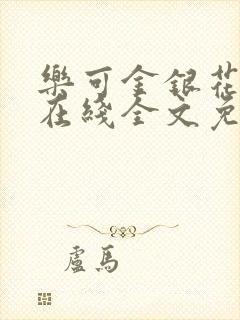 樂可金銀花
在綫全文免
盧馬